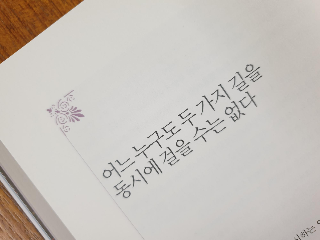 어느 누구도 두 가지 길을
동시에 걸을 수는 없다